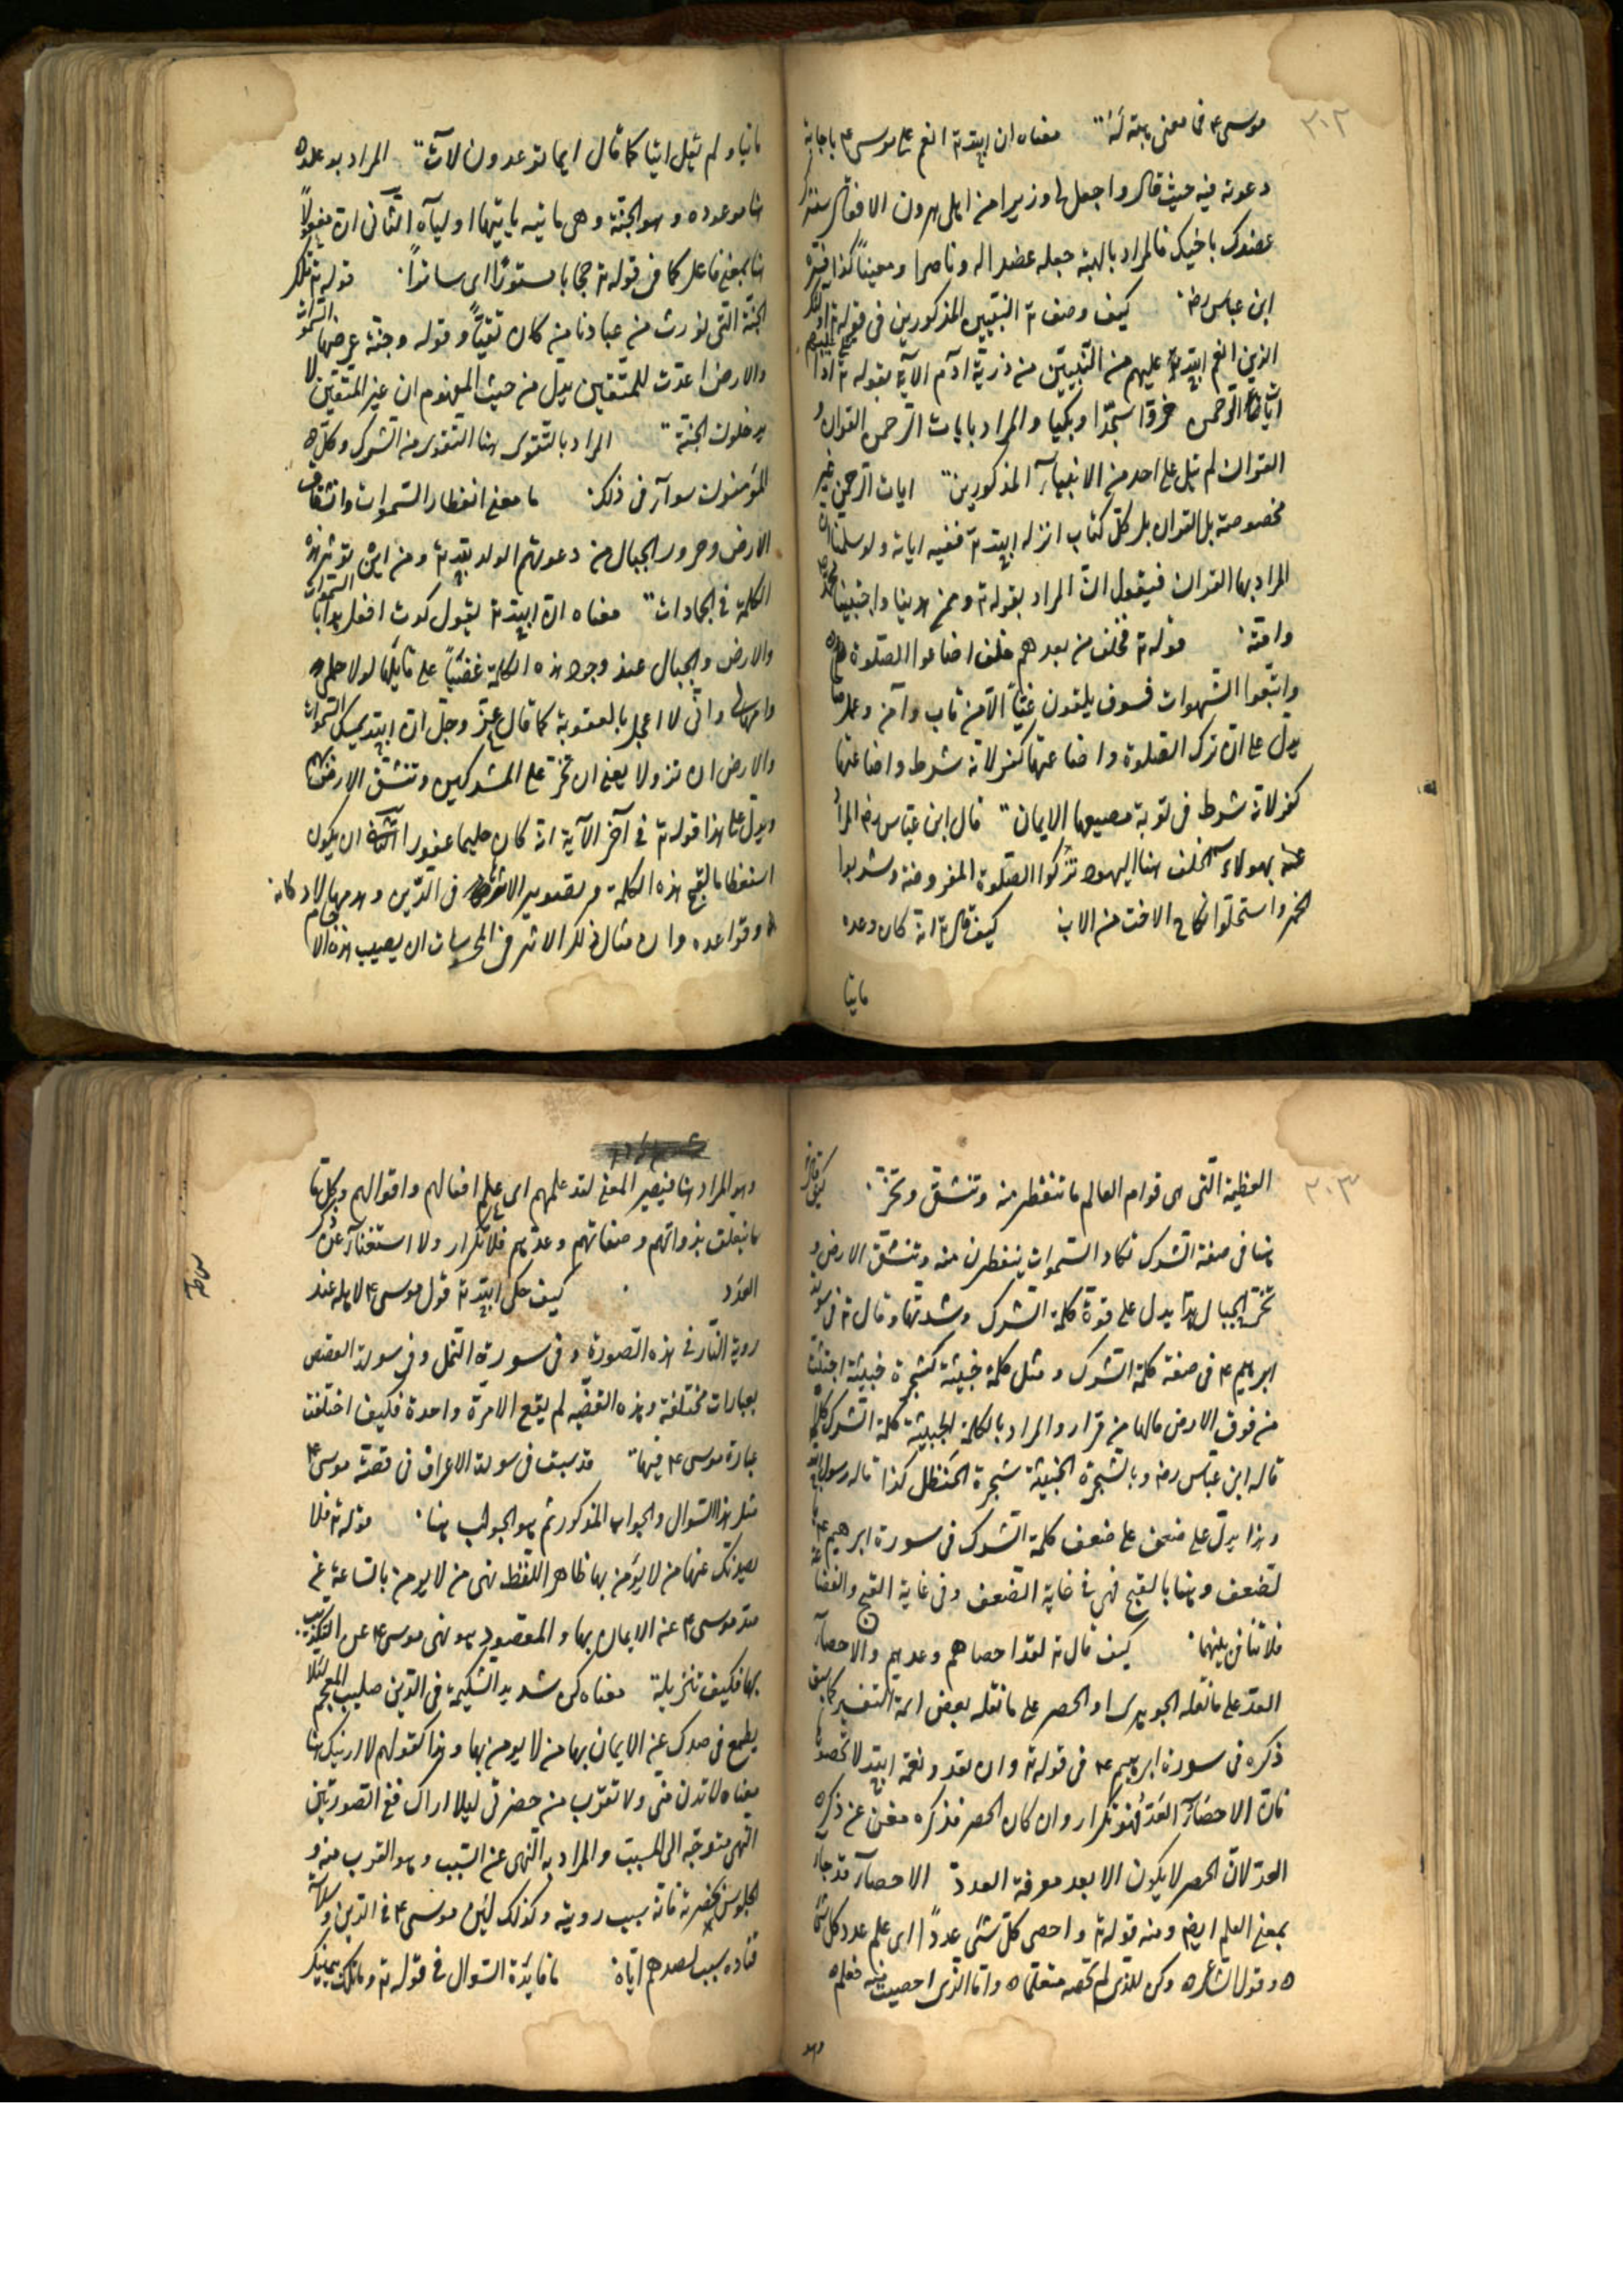 ٣٠٢
موسى ع فما معنى هبته له معناه ان الله تع انعم على موسى ع باجابة
دعوته فيه حيث قال واجعل لى وزيرا من اهلى هرون الاخ فقال سنشد
عضدك باخيك فالمراد بالهبة جعله عضدا له وناصرا ومعينا كذا فسره
ابن عباس رضه كيف وصف تع النبيين المذكورين فى قوله تع اولئك
الذين انعم الله عليهم من النبيين من ذرية آدم الآية بقوله تع اذا تتلى عليهم
آيات الرحمن خروا سجدا وبكيا والمراد بايات الرحمن القرآن و
القران لم يتل على احد من الانبياء المذكورين ايات الرحمن غير
مخصوصة بالقران بل كل كتاب انزله الله تع ففيه اياته ولو سلمنا ان
المراد بها القران فيقول ان المراد بقوله تع وممن هدينا واجتبينا محمد
وامته قوله تع فخلف من بعدهم خلف اضاعوا الصلوة
واتبعوا الشهوات فسوف يلقون غيا الا من تاب وآمن وعمل صالحا
يدل على ان ترك الصلوة واضاعتها كفر لانه شرط واضاعتها
كفر لانه شرط فى توبة مضيعها الايمان قال ابن عباس رضه المراد
عنه بهولاء الخلف هنا اليهود تركوا الصلوة المفروضة وشربوا
الخمر واستحلوا نكاح الاخت من الاب كيف قال تع انه كان وعده
ماتيا
ماتيا ولم يقل اتيا كما قال انما توعدون لآت المراد بوعده
هنا موعوده وهو الجنة وهى ماتيه ياتيها اولياه الثانى ان مفعولا
هنا بمعنى فاعل كما فى قوله تع حجابا مستورا اى ساترا قوله تع تلك
الجنة التى نورث من عبادنا من كان تقيا وقوله وجنة عرضها السموات
والارض اعدت للمتقين يدل من حيث المفهوم ان غير المتقين لا
يدخلون الجنة المراد بالتقوى هنا التقوى من الشرك وكل
المؤمنون سوآء فى ذلك ما معنى انفطار السموات وانشقاق
الارض وخرور الجبال من دعوتهم الولد لله تع ومن اين تؤثر هذه
الكلمة فى الجمادات معناه ان الله تع يقول كدت افعل هذا بالسموات
والارض والجبال عند وجود هذه الكلمة غضبا على قائلها لولا حلمى
وامهالى وانى لا اعجل بالعقوبة كما قال عز وجل ان الله يمسك السموات
والارض ان تزولا يعنى ان تخر على المشركين وتنشق الارض بهم
ويدل على هذا قوله تع فى آخر الآية انه كان حليما غفورا الثانى ان يكون
استعظاما لقبح هذه الكلمة وتصويرا لاثرها فى الدين وهدمها لاركانه
وقواعده وان مثال ذلك الاثر فى المحسوسات ان يصيب هذه الاجرام
٣٠٣
العظيمة التى هى قوام العالم ما تنفطر منه وتنشق وتخر كيف قال تع
هنا فى صفة الشرك تكاد السموات يتفطرن منه وتنشق الارض و
تخر الجبال هذا يدل على قوة كلمة الشرك وشدتها وقال تع فى سورة
ابرهيم ع فى صفة كلمة الشرك ومثل كلمة خبيثة كشجرة خبيثة اجتثت
من فوق الارض مالها من قرار والمراد بالكلمة الخبيثة كلمة الشرك كذا
قاله ابن عباس رضه وبالشجرة الخبيثة شجرة الحنظل كذا قاله رسول الله
وهذا يدل على ضعف كلمة الشرك فى سورة ابرهيم ع
لضعف وهنا بالقبح فهى فى غاية الضعف وفى غاية القبح والفضاعة
فلا تنافى بينهما كيف قال تع لقد احصاهم وعدهم والاحصآء
العد على ما نقله الجوهرى او الحصر على ما نقله بعض ائمة التفسير كما سبق
ذكره فى سورة ابرهيم ع فى قوله تع وان تعدوا نعمة الله لا تحصوها
فان الاحصآء العد فهو تكرار وان كان الحصر فذكره مغن عن ذكر
العد لان الحصر لا يكون الا بعد معرفة العدد الاحصآء قد جآء
بمعنى العلم ايضا ومنه قوله تع واحصى كل شئ عددا اى علم عدد كل شئ
وقول الشاعر وكن للذى لم تحصه متعلما واما الذى احصيت منه فعلم
وهو
وهو المراد هنا فيصير المعنى لقد علمهم اى علم افعالهم واقوالهم وكل ما
يتعلق بذواتهم وصفاتهم وعدهم فلا تكرار ولا استغناء عن ذكر
العدد كيف حكى الله تع قول موسى ع لاهله عند
روية النار فى هذه السورة وفى سورة النمل وفى سورة القصص
بعبارات مختلفة وهذه القضيه لم يقع الا مرة واحدة فكيف اختلفت
عبارة موسى ع فيها قد سبق فى سورة الاعراف فى قصة موسى ع
مثل هذا السوال والجواب المذكور ثم هو الجواب هنا قوله تع فلا
يصدنك عنها من لا يؤمن بها ظاهر اللفظ نهى من لا يومن بالساعة عن
صد موسى ع عن الايمان بها والمقصود هو نهى موسى ع عن التكذيب
بها فكيف تنزيله معناه كن شديد الشكيمة فى الدين صليب المعجم لئلا
يطمع فى صدك عن الايمان بها من لا يومن بها وهذا كقولهم لا ارينك هنا
معناه لا تدن منى ولا تقرب من حضرتى ليلا اراك ففى الصورتين
النهى متوجه الى المسبب والمراد به النهى عن السبب وهو القرب منه و
الجلوس بحضرته فانه سبب رويته وكذلك لين موسى ع فى الدين وسلاسة
قياده سبب لصدهم اياه ما فايدة السوال فى قوله تع وما تلك بيمينك